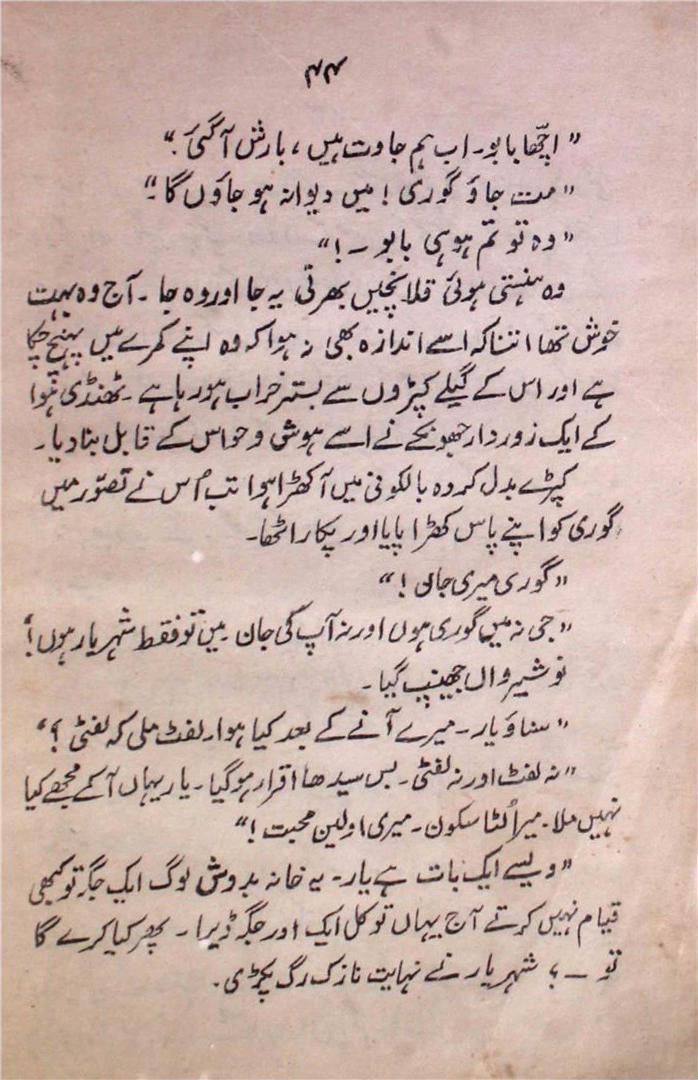 ۴۴
”اچھا بابو۔ اب ہم جاوت ہیں، بارش آگئی۔“
”مت جاؤ گوری! میں دیوانہ ہو جاؤں گا۔“
”وہ تو تم ہو ہی بابو۔!“
وہ ہنستی ہوئی قلانچیں بھرتی یہ جا اور وہ جا۔ آج وہ بہت
خوش تھا اتنا کہ اسے اندازہ بھی نہ ہوا کہ وہ اپنے کمرے میں پہنچ چکا
ہے اور اس کے گیلے کپڑوں سے بستر خراب ہو رہا ہے۔ ٹھنڈی ہَوا
کے ایک زوردار جھونکے نے اسے ہوش و حواس کے قابل بنا دیا۔
کپڑے بدل کر وہ بالکونی میں آ کھڑا ہوا تب اُس نے تصوّر میں
گوری کو اپنے پاس کھڑا پایا اور پکار اٹھا۔
”گوری میری جان!“
”جی نہ میں گوری ہوں اور نہ آپ کی جان۔ میں تو فقط شہریار ہوں!“
نوشیرواں جھینپ گیا۔
”سناؤ یار۔ میرے آنے کے بعد کیا ہوا۔ لفٹ ملی کہ لفٹی؟“
”نہ لفٹ اور نہ لفٹی۔ بس سیدھا اقرار ہوگیا۔ یار یہاں آکے مجھے کیا
نہیں ملا۔ میرا لُٹا سکون۔ میری اولین محبت!“
”ویسے ایک بات ہے یار۔ یہ خانہ بدوش لوگ ایک جگہ تو کبھی
قیام نہیں کرتے آج یہاں تو کل ایک اور جگہ ڈیرا۔ پھر کیا کرے گا
تو ۔؟ شہریار نے نہایت نازک رگ پکڑی۔